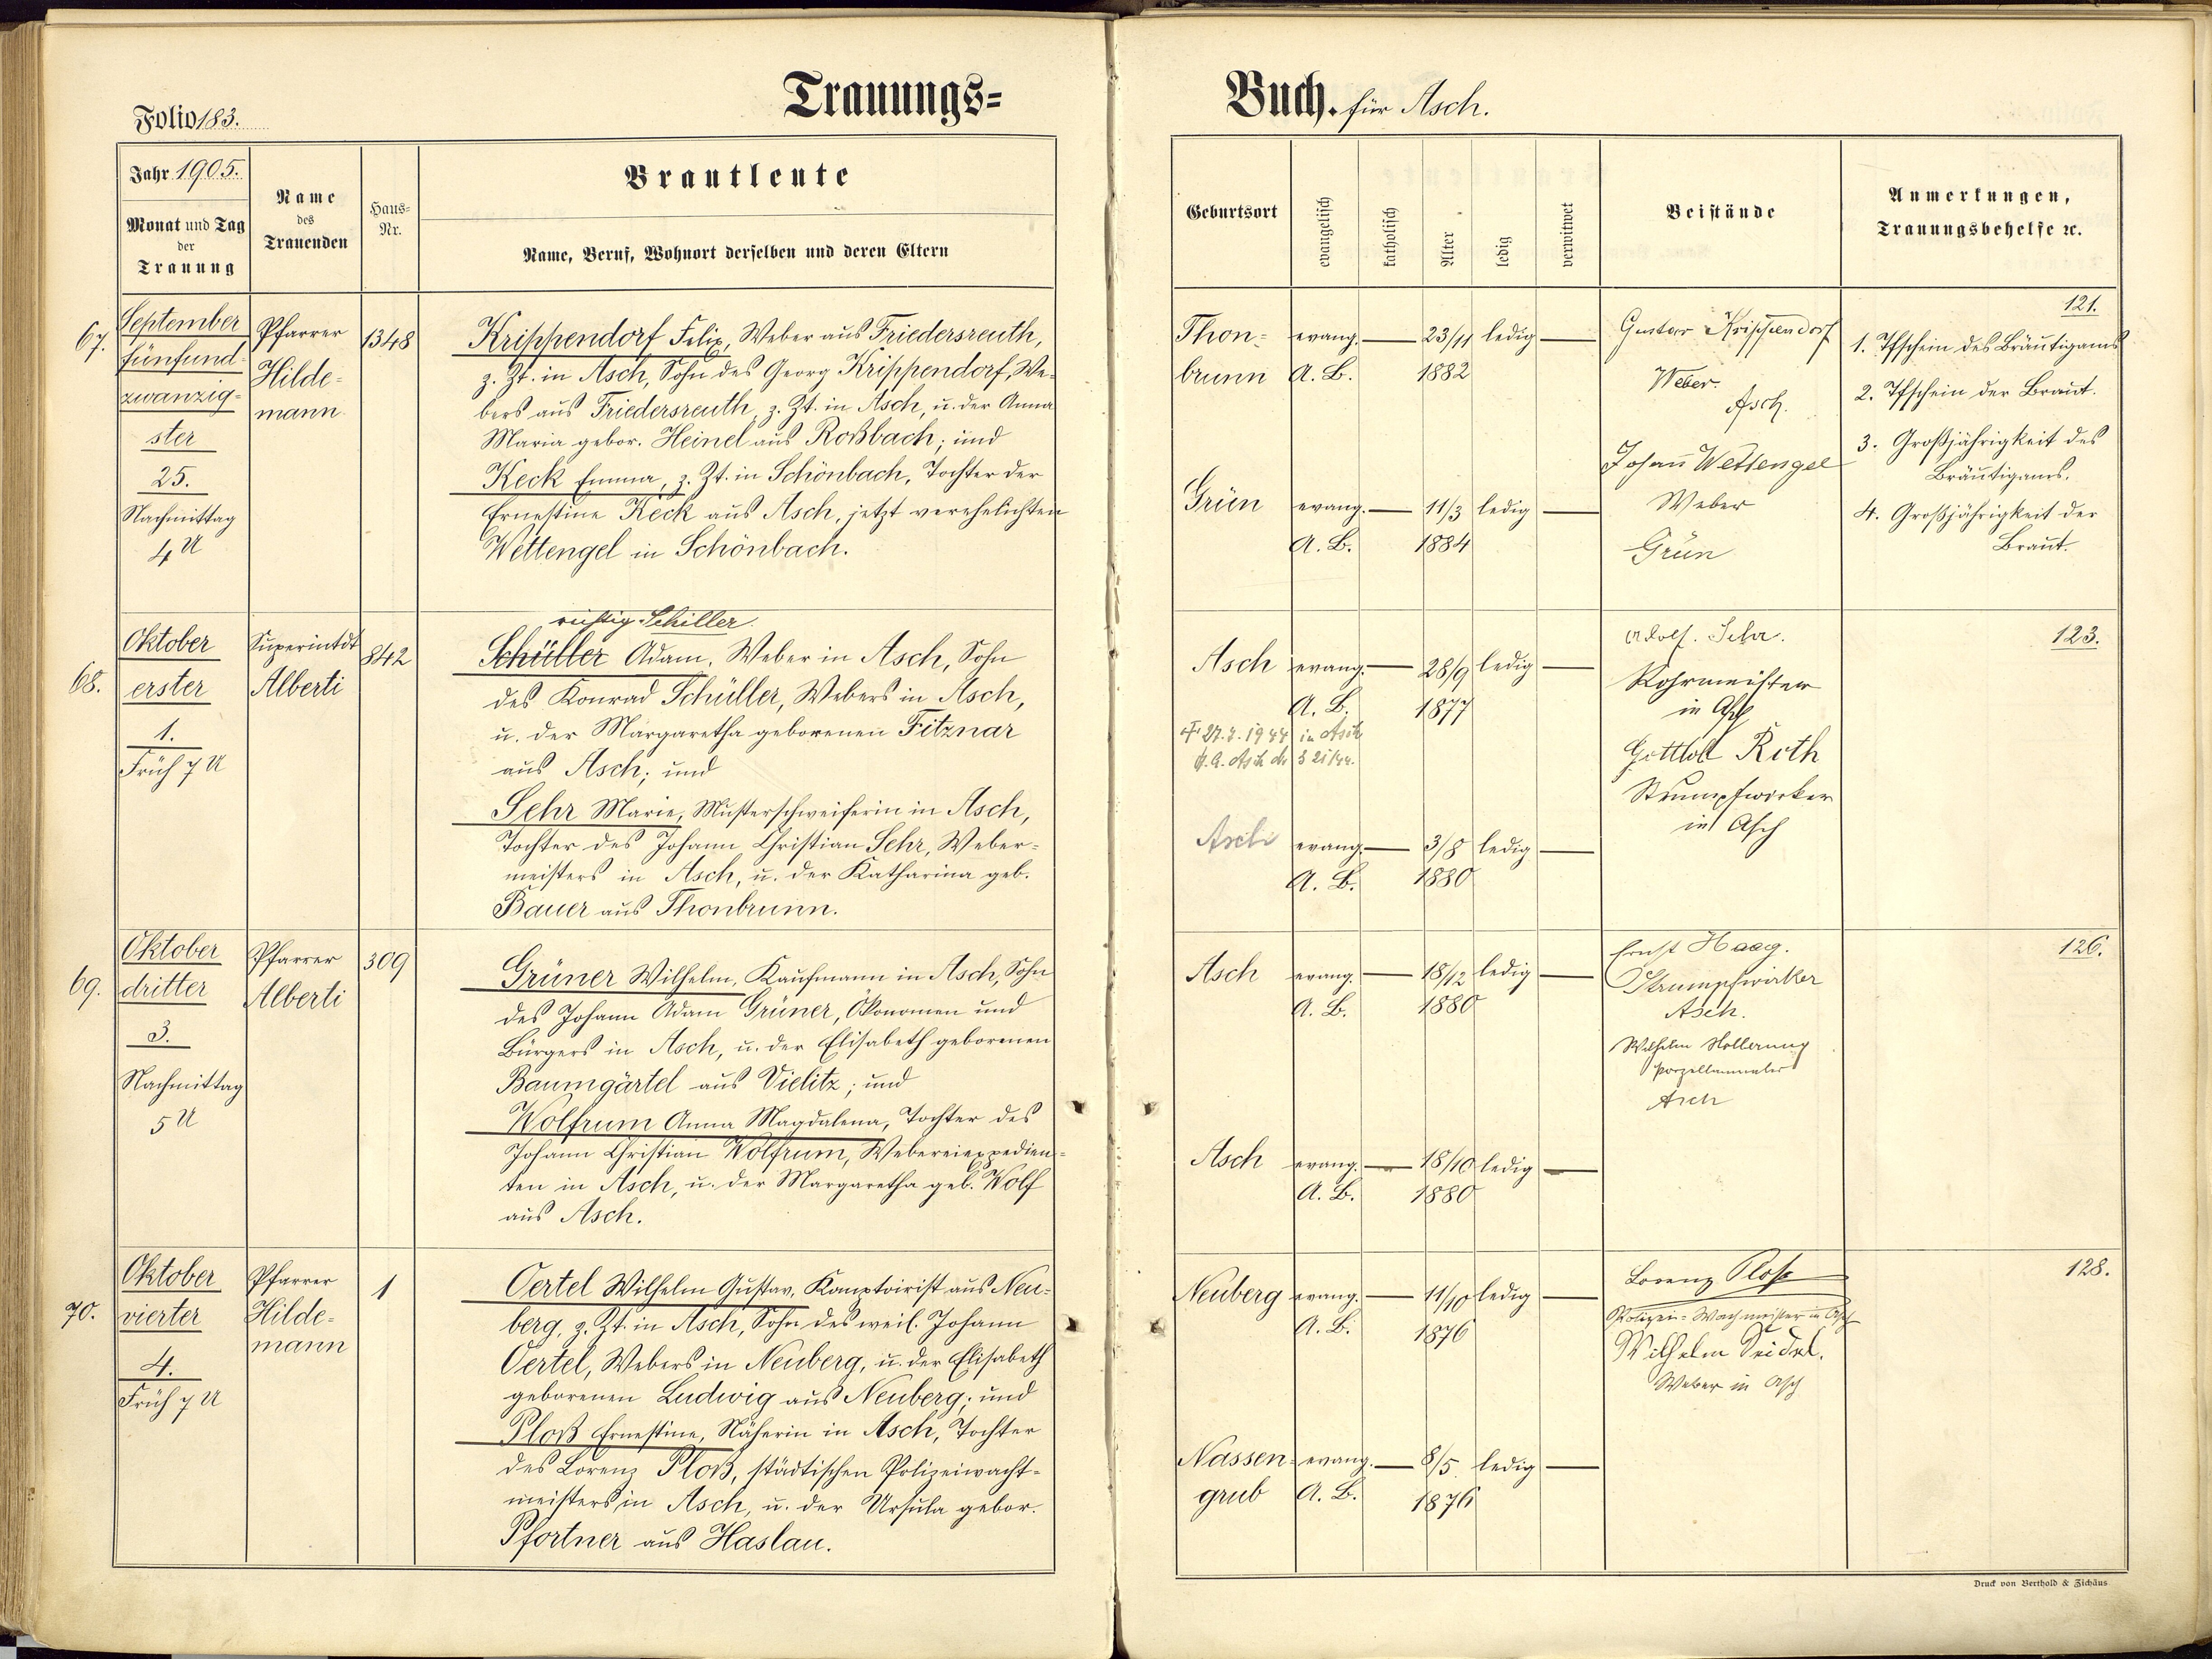 Folio 183.
Trauungs=
Jahr 1905.
Monat und Tag
der
Trauung
Name
des
Trauenden
Haus=
Nr.
Brautleute
Name, Beruf, Wohnort derselben und deren Eltern
67.
September
fünfund=
zwanzig=
ster
25.
Nachmittag
4 U
Pfarrer
Hilde=
mann
1348
Krippendorf Felix, Weber aus Friedersreuth,
z. Zt. in Asch, Sohn des Georg Krippendorf, We=
bers aus Friedersreuth, z. Zt. in Asch, u. der Anna
Maria gebor. Heinel aus Roßbach; und
Keck Emma, z. Zt. in Schönbach, Tochter der
Ernestine Keck aus Asch, jetzt verehelichten
Wettengel in Schönbach.
68.
Oktober
erster
1.
Früh 7 U
Superintdt
Alberti
842
richtig Schiller.
Schüller Adam, Weber in Asch, Sohn
des Konrad Schüller, Webers in Asch,
u. der Margaretha geborenen Fitznar
aus Asch; und
Sehr Marie, Musterschweiferin in Asch,
Tochter des Johann Christian Sehr, Weber=
meisters in Asch, u. der Katharina geb.
Bauer aus Thonbrunn.
69.
Oktober
dritter
3.
Nachmittag
5 U
Pfarrer
Alberti
309
Grüner Wilhelm, Kaufmann in Asch, Sohn
des Johann Adam Grüner, Ökonomen und
Bürgers in Asch, u. der Elisabeth geborenen
Baumgärtel aus Vielitz; und
Wolfrum Anna Magdalena, Tochter des
Johann Christian Wolfrum, Webereiexpedien=
ten in Asch, u. der Margaretha geb. Wolf
aus Asch.
70.
Oktober
vierter
4.
Früh 7 U
Pfarrer
Hilde=
mann
1
Oertel Wilhelm Gustav, Komptoirist aus Neu=
berg, z. Zt. in Asch, Sohn des weil. Johann
Oertel, Webers in Neuberg, u. der Elisabeth
geborenen Ludwig aus Neuberg; und
Ploß Ernestine, Näherin in Asch, Tochter
des Lorenz Ploß, städtischen Polizeiwacht=
meisters in Asch, u. der Ursula gebor.
Pfortner aus Haslau.
Buch. für Asch.
Geburtsort
evangelisch
katholisch
Alter
ledig
verwitwet
Beistände
Anmerkungen,
Trauungsbehelfe ec.
Thon=
brunn
evang.
A. B.
23/11
1882
ledig
Grün
evang.
A. B.
11/3
1884
ledig
Gustav Krippendorf
Weber.
Asch.
Johann Wettengel
Weber
Grün
121.
1. Tfschein des Bräutigams
2. Tfschein der Braut.
3. Großjährigkeit des
Bräutigams.
4. Großjährigkeit der
Braut.
Asch
evang.
A. B.
28/9
1877
ledig
1944 in Asch
Asch
evang.
A. B.
3/8
1880
ledig
Adolf. Sehr.
Rohrmeister
in Asch
Gottlob Roth
Strumpfwirker
in Asch
123.
Asch
evang.
A. B.
18/12
1880
ledig
Asch
evang.
A. B.
18/10
1880
ledig
Ernst Haag.
Strumpfwirker
Asch.
Wilhelm Hollerung
Porzellanmaler
Asch
126.
Neuberg
evang.
A. B.
11/10
1876
ledig
Nassen=
grub
evang.
A. B.
8/5.
1876
ledig
Lorenz Ploß
Polizei=Wachmeister in Asch
Wilhelm Seidel.
Weber in Asch
128.
Druck von Berthold & Zichäus